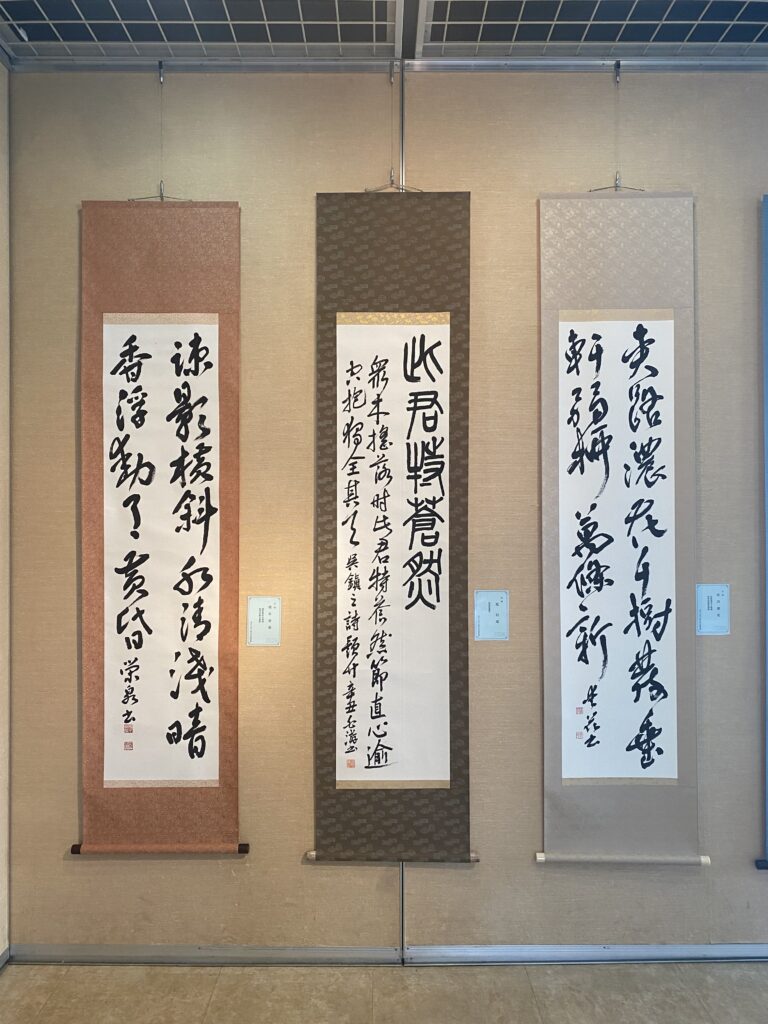 夾路濃花千樹發垂
軒弱柳萬條新
此君特蒼然
衆木搖落時此君特蒼然節直心逾
空抱獨全其天 吳鎮之詩題竹 辛丑
疎影横斜水清淺暗
香浮動月黄昏 榮泉書